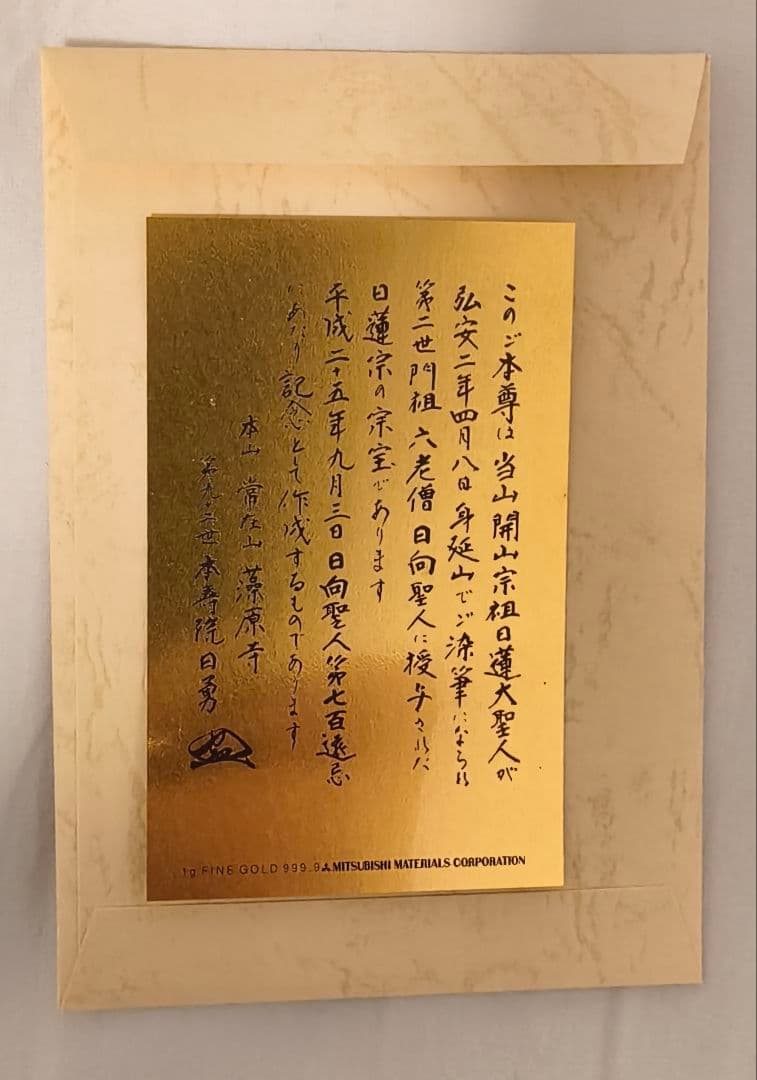 このご本尊は当山開山宗祖日蓮大聖人が
弘安二年四月八日身延山でご染筆になられ
第二世門祖六老僧日向聖人に授与された
日蓮宗の宗宝であります
平成二十五年九月三日日向聖人第七百遠忌
にあたり記念として作成するものであります
本山 常在山 藻原寺
第九十二世 本尊院日勇
1g FINE GOLD 999.9 MITSUBISHI MATERIALS CORPORATION